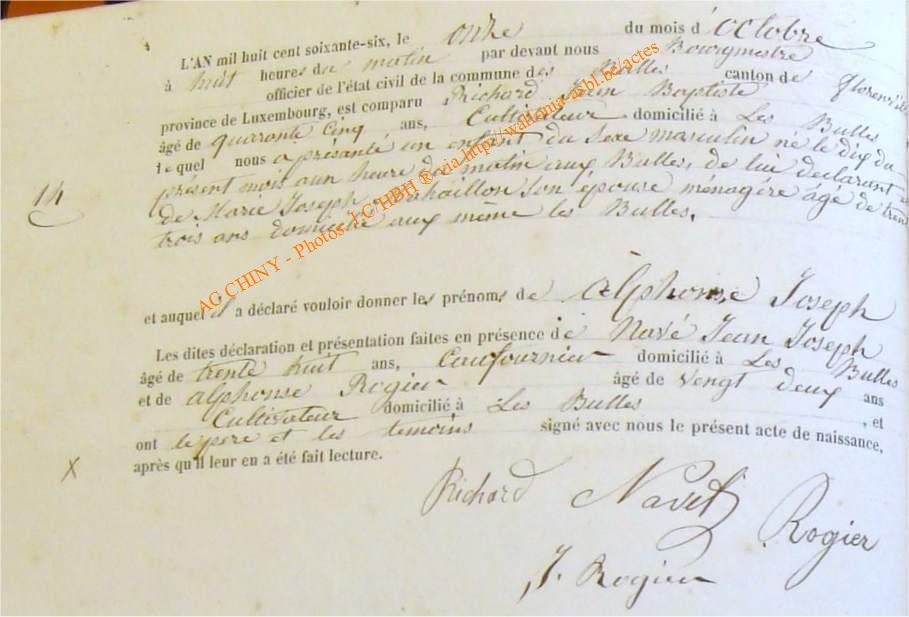 L'AN mil huit cent soixante-six, le onze du mois d'octobre
à huit heures du matin par devant nous Bourgmestre
officier de l'état civil de la commune des Bulles canton de florenville
province de Luxembourg, est comparu Richard Jean Baptiste
âgé de quarante cinq ans, Cultivateur domicilié à Les Bulles
lequel nous a présenté un enfant du sexe masculin né le dix du
présent mois a un heure du matin aux Bulles, de lui déclarant
14
de Marie Joseph son épouse ménagère âgé de trente
trois ans domicilié aux même les Bulles.
et auquel il a déclaré vouloir donner les prénoms de alphonse Joseph
Les dites déclaration et présentation faites en présence de Navé Jean Joseph
âgé de trente huit ans, Caufournier domicilié à Les Bulles
et de alphonse Rogier âgé de vengt deux ans
Cultivateur domicilié à Les Bulles , et
ont le père et les temoins signé avec nous le présent acte de naissance,
X après qu'il leur en a été fait lecture.
Richard Navet Rogier
J. Rogier
AC CHINY - Photos J.C HBH ® via http://wallonia-asbl.be/actes